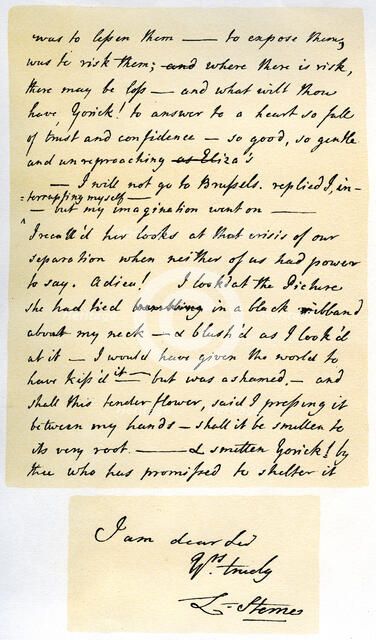 was to lessen them — to expose them,
was to risk them; and where there is risk,
there may be loss — and what wilt thou
have, Yorick! to answer to a heart so full
of trust and confidence — so good, so gentle
and unreproaching as Eliza's
— I will not go to Brussels. replied I, in-
=terrupting myself —
— but my imagination went on —
I recall'd her looks at that crisis of our
separation when neither of us had power
to say. Adieu! I look'd at the Picture
she had tied in a black ribband
about my neck — & blush'd as I look'd
at it — I would have given the world to
have kiss'd it — but was ashamed. — and
shall this tender flower, said I pressing it
between my hands — shall it be smitten to
its very root. — & smitten Yorick! by
thee who has promised to shelter it
I am dear Sir
Yrs. truely
L. Sterne